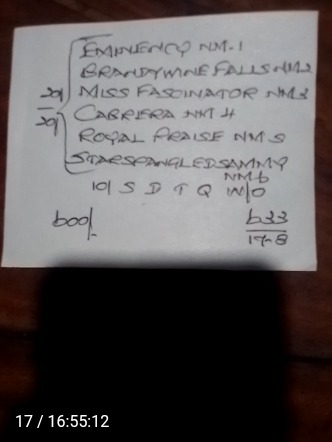 EMINENCY NM.1
BRANDYWINE FALLS NM2
20/
20/
MISS FASCINATOR NM3
CABRIERA NM 4
ROYAL PRAISE NM 5
STARSPANGLEDSAMMY
NM6
10/ S D T Q W/O
600/-
633
17-8
17 / 16:55:12